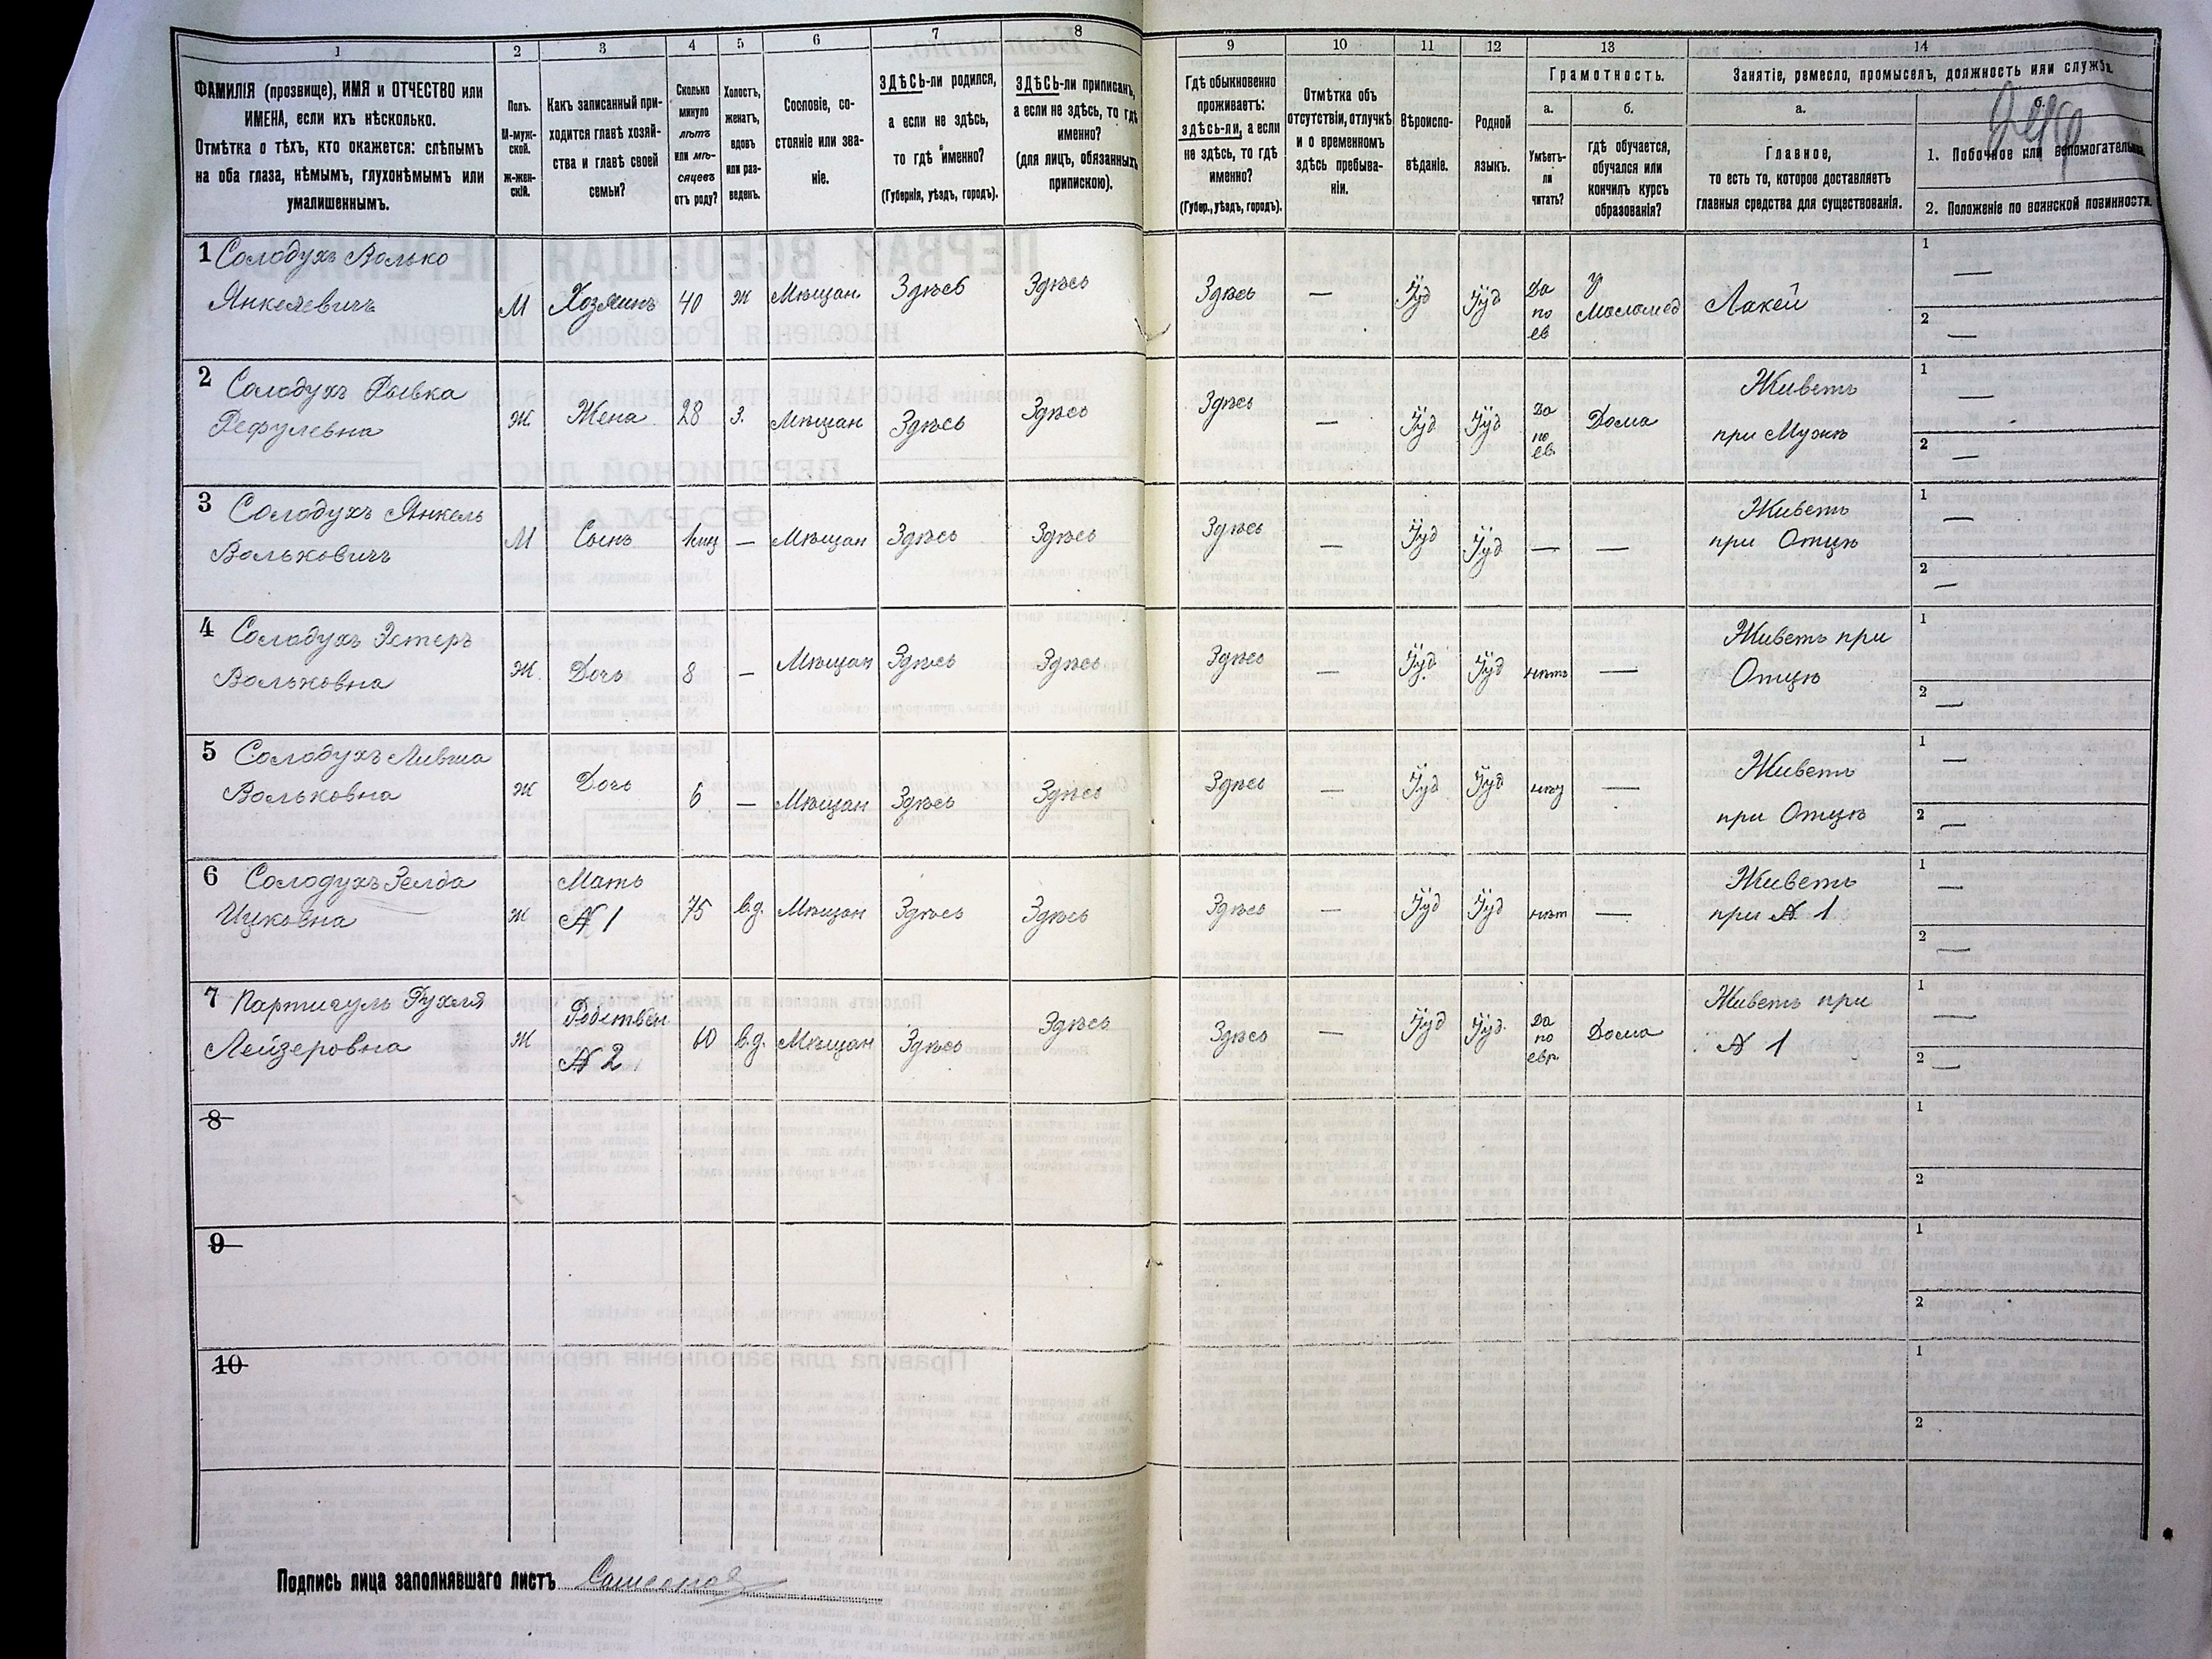 1 2 3 4 5 6 7 8 9 10 11 12 13 14
ФАМИЛІЯ (прозвище), ИМЯ и ОТЧЕСТВО или
ИМЕНА, если ихъ нѣсколько.
Отмѣтка о тѣхъ, кто окажется: слѣпымъ
на оба глаза, нѣмымъ, глухонѣмымъ или
умалишеннымъ.
Полъ.
М-муж-
ской.
Ж-жен-
скій.
Какъ записанный при-
ходится главѣ хозяй-
ства и главѣ своей
семьи?
Сколько
минуло
лѣтъ
или мѣ-
сяцевъ
отъ роду?
Холостъ,
женатъ,
вдовъ
или раз-
веденъ.
Сословіе, со-
стояніе или зва-
ніе.
ЗДѢСЬ-ли родился,
а если не здѣсь,
то гдѣ именно?
(Губернія, уѣздъ, городъ).
ЗДѢСЬ-ли приписанъ,
а если не здѣсь, то гдѣ
именно?
(для лицъ, обязанныхъ
припискою).
Гдѣ обыкновенно
проживаетъ:
здѣсь-ли, а если
не здѣсь, то гдѣ
именно?
(Губер., уѣздъ, городъ).
Отмѣтка объ
отсутствіи, отлучкѣ
и о временномъ
здѣсь пребыва-
ніи.
Вѣроиспо-
вѣданіе.
Родной
языкъ.
Грамотность.
а.
Умѣетъ-
ли
читать?
б.
гдѣ обучается,
обучался или
кончилъ курсъ
образованія?
Занятіе, ремесло, промыселъ, должность или служба.
а.
Главное,
то есть то, которое доставляетъ
главныя средства для существованія.
б.
1. Побочное или вспомогательное.
2. Положеніе по воинской повинности.
1 Солодухъ Волько
Янкелевичъ
М Хозяинъ 40 ж Мѣщан. Здѣсь Здѣсь Здѣсь — Іуд Іуд
Да
по
ев
У
Меламед
Лакей
1 —
2 —
2 Солодухъ Рывка
Рефулевна
Ж. Жена 28 з. Мѣщан Здѣсь Здѣсь Здѣсь — Іуд Іуд
Да
по
ев.
Дома
Живетъ
при Мужѣ
1 —
2 —
3 Солодухъ Янкель
Вольковичъ
М Сынъ — Мѣщан Здѣсь Здѣсь Здѣсь — Іуд Іуд — —
Живетъ
при Отцѣ
1 —
2 —
4 Солодухъ Эстеръ
Вольковна
Ж. Дочь 8 — Мѣщан Здѣсь Здѣсь Здѣсь — Іуд Іуд нѣтъ —
Живетъ при
Отцѣ
1
2 —
5 Солодухъ Ливша
Вольковна
Ж Дочь 6 — Мѣщан Здѣсь Здѣсь Здѣсь — Іуд Іуд —
Живетъ
при Отцѣ
1 —
2 —
6 Солодухъ Зелда
Ицковна
Ж
Мать
№ 1
75 вд. Мѣщан Здѣсь Здѣсь Здѣсь — Іуд Іуд нѣт —
Живетъ
при № 1
1 —
2 —
7 Партигуль Рухля
Лейзеровна
Ж
Родствен
№ 2
60 вд. Мѣщан Здѣсь Здѣсь Здѣсь — Іуд Іуд.
Да
по
евр.
Дома
Живетъ при
№ 1
1 —
2 —
8
1
2
9
1
2
10
1
2
Подпись лица заполнявшаго листъ